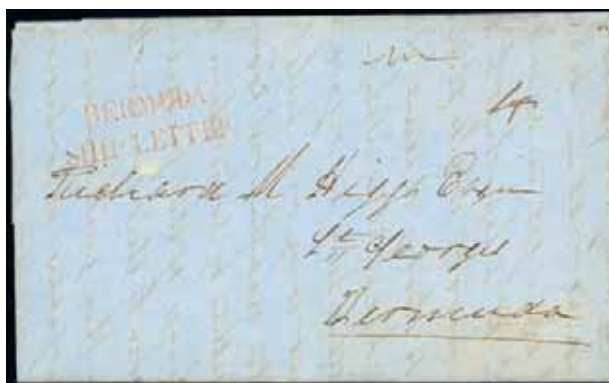 BERMUDA
SHIP LETTER
4
Richard M Higgs Esqr
St. Georges
Bermuda